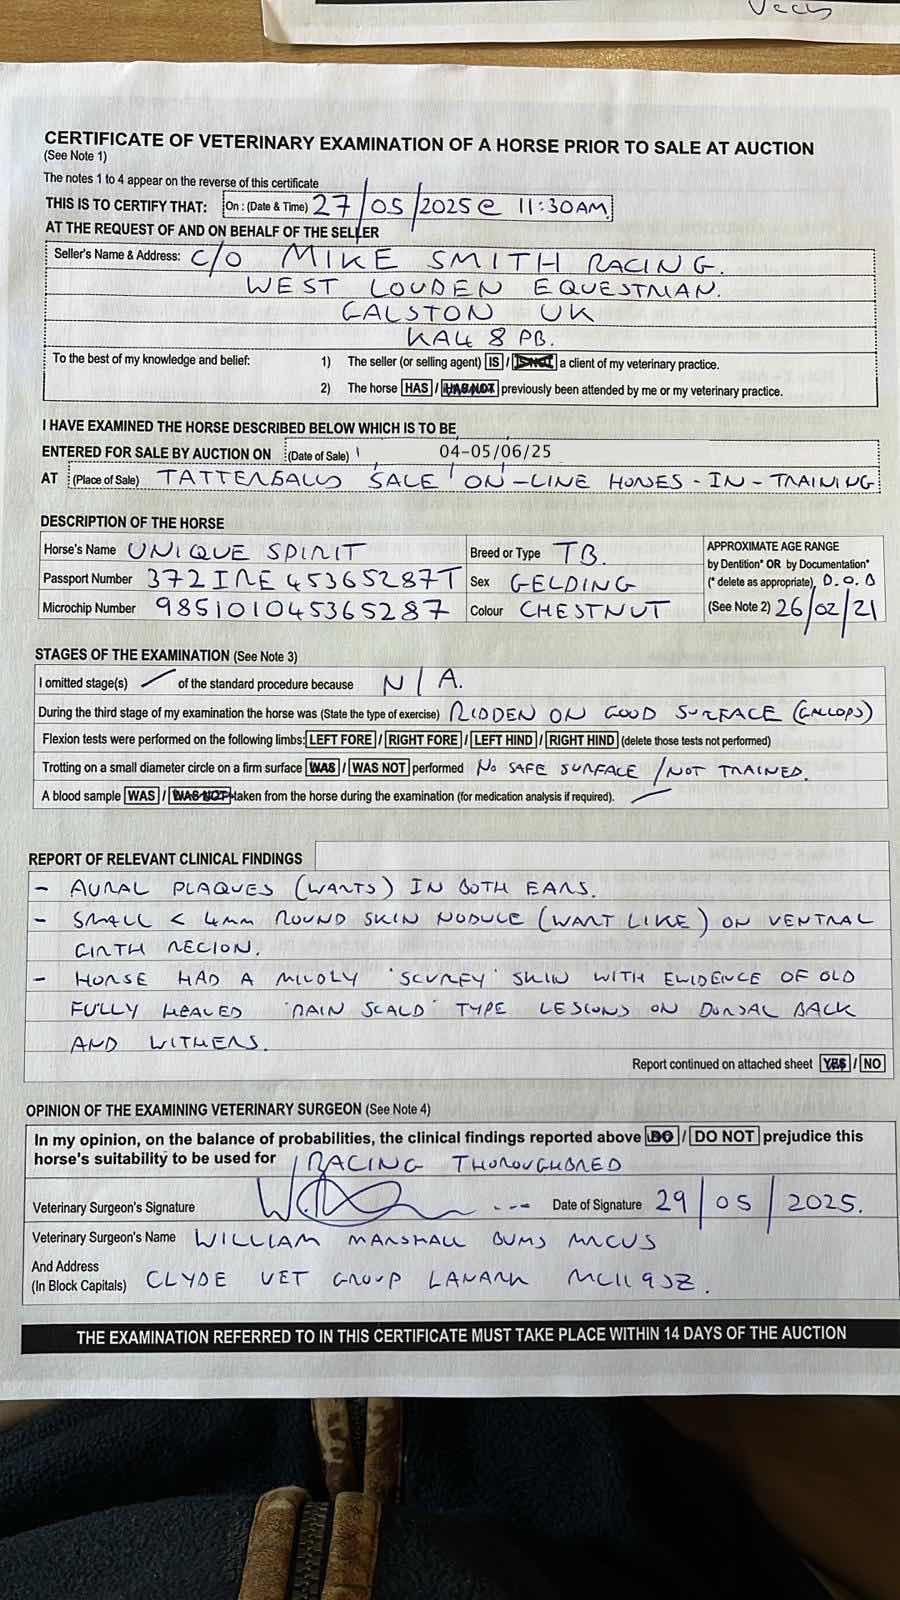 CERTIFICATE OF VETERINARY EXAMINATION OF A HORSE PRIOR TO SALE AT AUCTION
(See Note 1)
The notes 1 to 4 appear on the reverse of this certificate
THIS IS TO CERTIFY THAT: On: (Date & Time) 27/05/2025 @ 11:30AM
AT THE REQUEST OF AND ON BEHALF OF THE SELLER
Seller's Name & Address: C/O MIKE SMITH RACING.
WEST LOUDEN EQUESTRIAN.
GALSTON UK
KA4 8PB.
To the best of my knowledge and belief: 1) The seller (or selling agent) IS / IS NOT a client of my veterinary practice.
2) The horse HAS / HAS NOT previously been attended by me or my veterinary practice.
I HAVE EXAMINED THE HORSE DESCRIBED BELOW WHICH IS TO BE
ENTERED FOR SALE BY AUCTION ON (Date of Sale) 04-05/06/25
AT (Place of Sale) TATTERSALLS SALE ON-LINE HORSES-IN-TRAINING
DESCRIPTION OF THE HORSE
Horse's Name UNIQUE SPIRIT Breed or Type TB. APPROXIMATE AGE RANGE
by Dentition* OR by Documentation*
Passport Number 372IRE45365287T Sex GELDING (* delete as appropriate) D.O.B
Microchip Number 985101045365287 Colour CHESTNUT (See Note 2) 26/02/21
STAGES OF THE EXAMINATION (See Note 3)
I omitted stage(s) — of the standard procedure because N/A.
During the third stage of my examination the horse was (State the type of exercise) RIDDEN ON GOOD SURFACE (GALLOPS)
Flexion tests were performed on the following limbs: LEFT FORE / RIGHT FORE / LEFT HIND / RIGHT HIND (delete those tests not performed)
Trotting on a small diameter circle on a firm surface WAS / WAS NOT performed NO SAFE SURFACE / NOT TRAINED.
A blood sample WAS / WAS NOT taken from the horse during the examination (for medication analysis if required).
REPORT OF RELEVANT CLINICAL FINDINGS
- AURAL PLAQUES (WARTS) IN BOTH EARS.
- SMALL < 4mm ROUND SKIN NODULE (WART LIKE) ON VENTRAL
GIRTH REGION.
- HORSE HAD A MILDLY 'SCURFY' SKIN WITH EVIDENCE OF OLD
FULLY HEALED 'RAIN SCALD' TYPE LESIONS ON DORSAL BACK
AND WITHERS.
Report continued on attached sheet YES / NO
OPINION OF THE EXAMINING VETERINARY SURGEON (See Note 4)
In my opinion, on the balance of probabilities, the clinical findings reported above DO / DO NOT prejudice this
horse's suitability to be used for RACING THOROUGHBRED
Veterinary Surgeon's Signature Date of Signature 29/05/2025.
Veterinary Surgeon's Name WILLIAM MARSHALL BVMS MRCVS
And Address
(In Block Capitals) CLYDE VET GROUP LANARK ML11 9SZ.
THE EXAMINATION REFERRED TO IN THIS CERTIFICATE MUST TAKE PLACE WITHIN 14 DAYS OF THE AUCTION